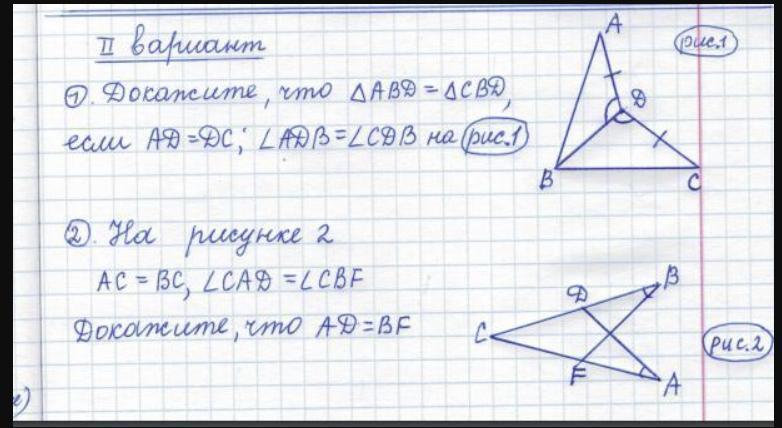 II вариант
рис.1
①. Докажите, что △ABD = △CBD,
если AD = DC; ∠ADB = ∠CDB на рис.1
A
D
B
C
②. На рисунке 2
AC = BC, ∠CAD = ∠CBF
Докажите, что AD = BF
B
D
C
F
A
рис.2